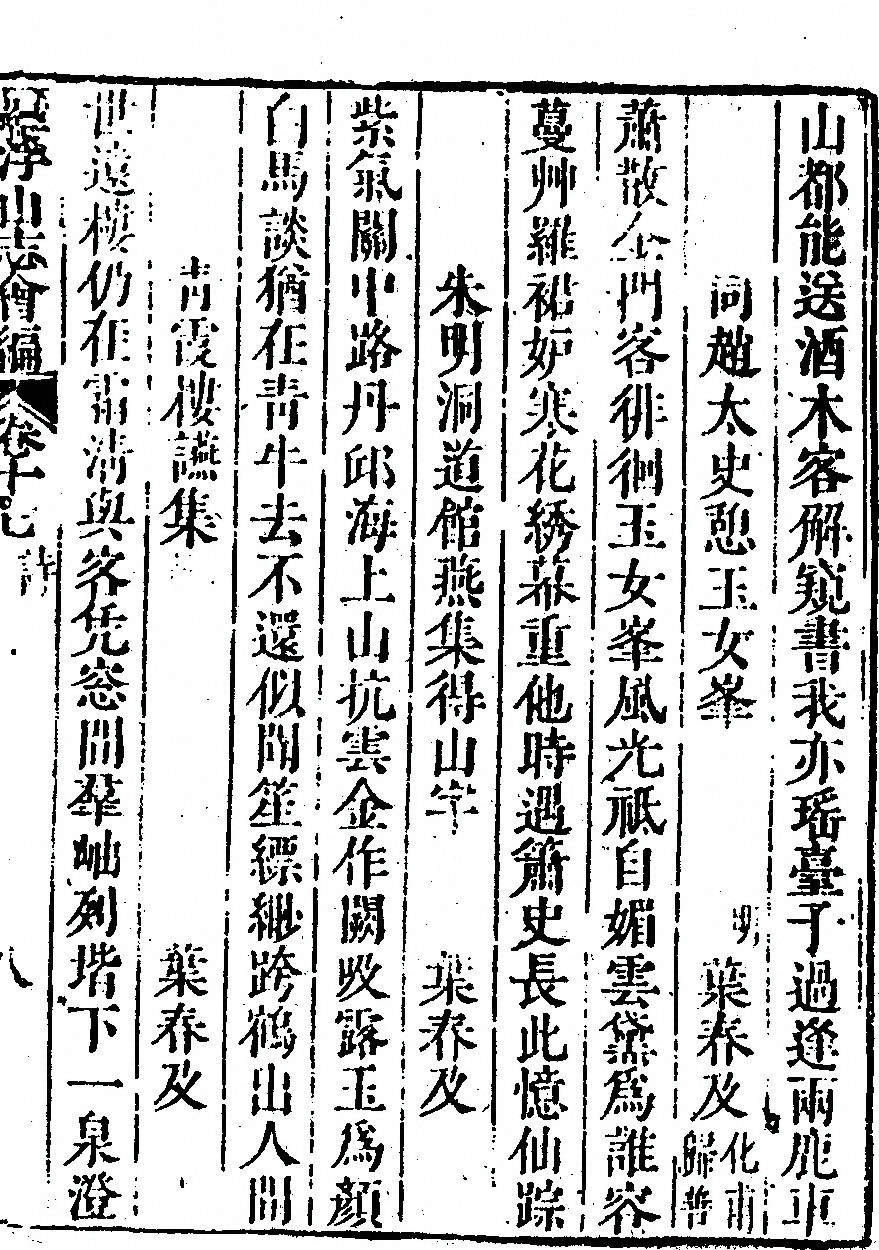 山都能送酒木客解窺書我亦瑤臺子過逢兩鹿車
同趙太史憩玉女峯 明 葉春及 化甫 歸善
蕭散金門客徘徊玉女峯風光祇自媚雲黛爲誰容
蔓艸羅裙妒寒花綉幕重他時遇簫史長此憶仙踪
朱明洞道館燕集得山字 葉春及
紫氣關中路丹邱海上山抗雲金作闕吸露玉爲顏
白馬談猶在青牛去不還似聞笙縹緲跨鶴出人間
青霞樓讌集 葉春及
世遠樓仍在霜清與客凭窓間羣岫列堦下一泉澄
羅浮山志會編 卷十七 詩 八